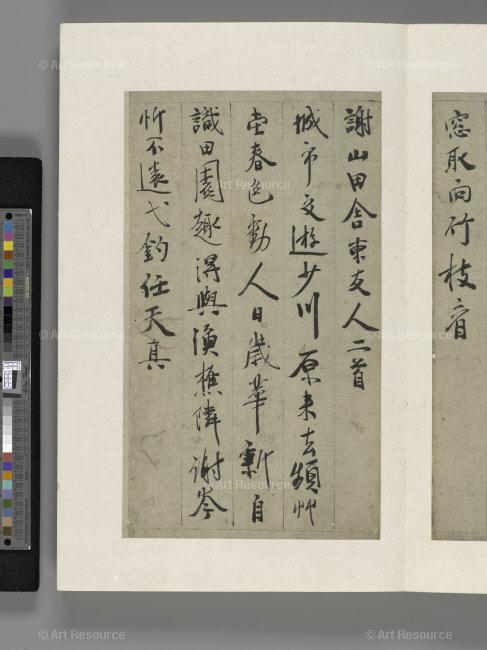 窓取向竹枝看
謝山田舎柬友人二首
城市交遊少川原来去頻艸
堂春色動人日歲華新自
識田園趣得與漁樵隣謝岑
忻不遠弋釣任天真
© Art Resource
© Art Resource
Art Resource
© Art Resource
© Art Resource
Art Resource
© Art Resource
© Art Resource